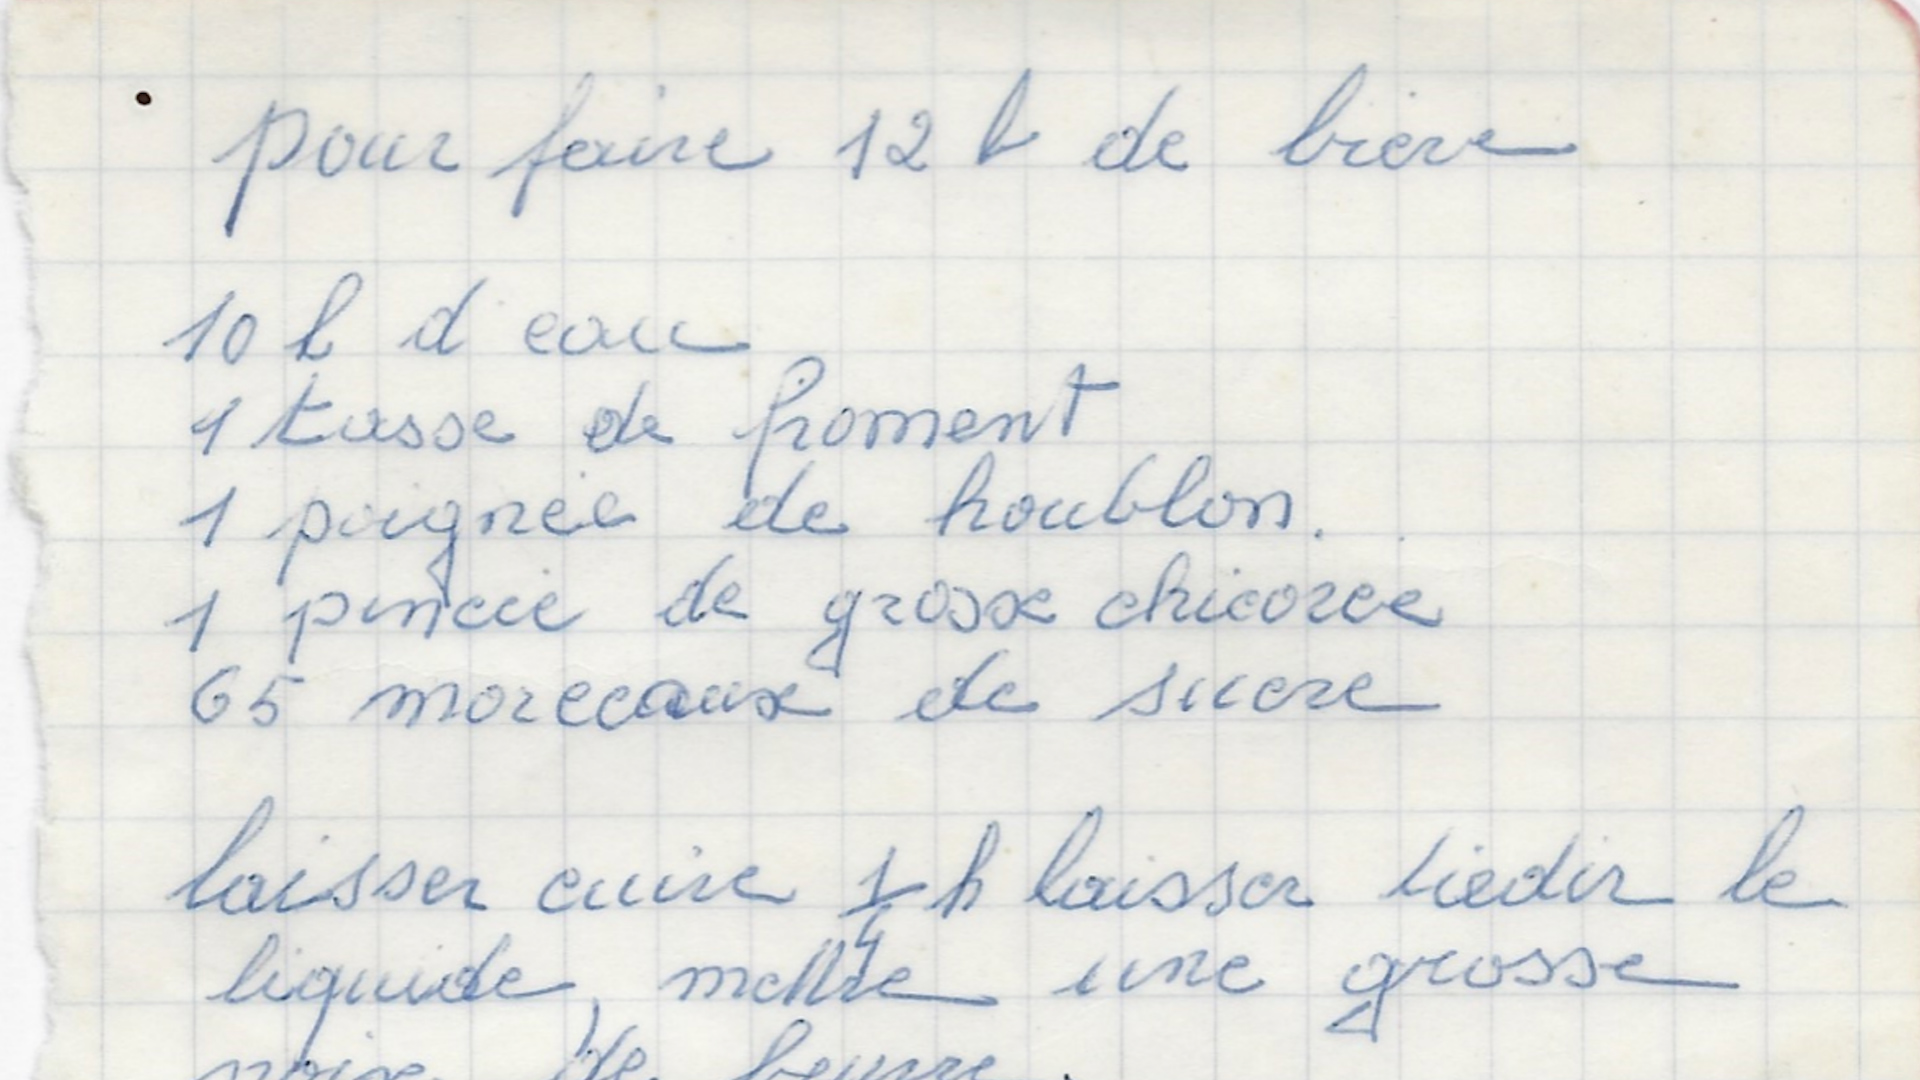 pour faire 12 l de biere
10 l d eau
1 tasse de froment
1 poignée de houblon.
1 pincée de grosse chicorée
65 morceaux de sucre
laisser cuire 1/4 h laisser tiedir le
liquide, mettre une grosse
noix de beurre.